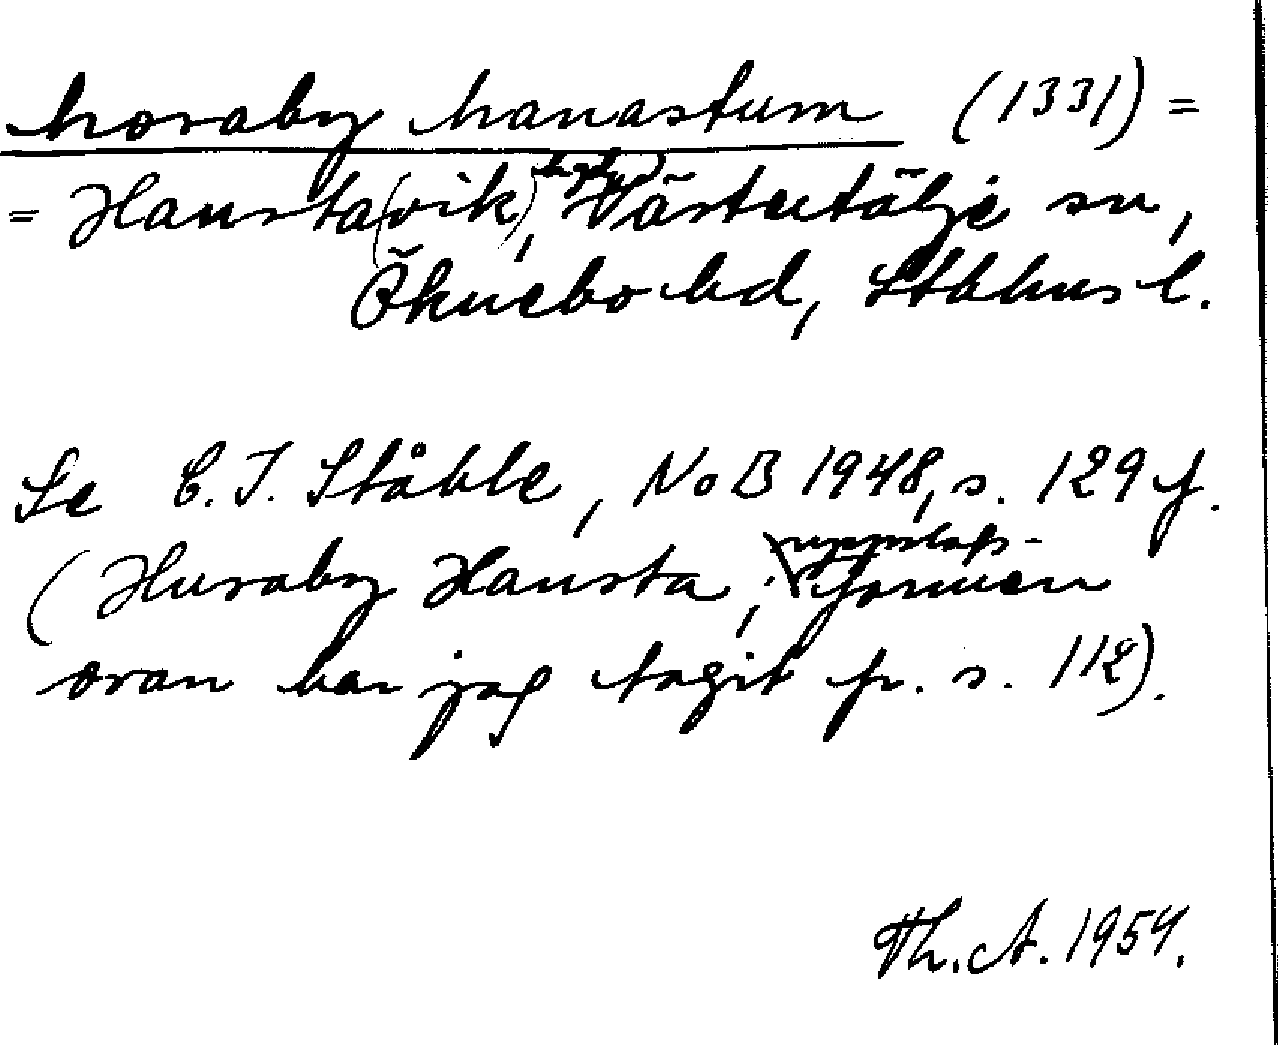 horaby hanastum (1331) =
= Hansta(vik), Västertälje sn,
Öknebo hd, Sthlms l.
Se C. I. Ståhle, NoB 1948, s. 129 f.
(Huraby Hansta, uppslags-
formen
ovan har jag tagit fr. s. 112).
Th. A. 1954.